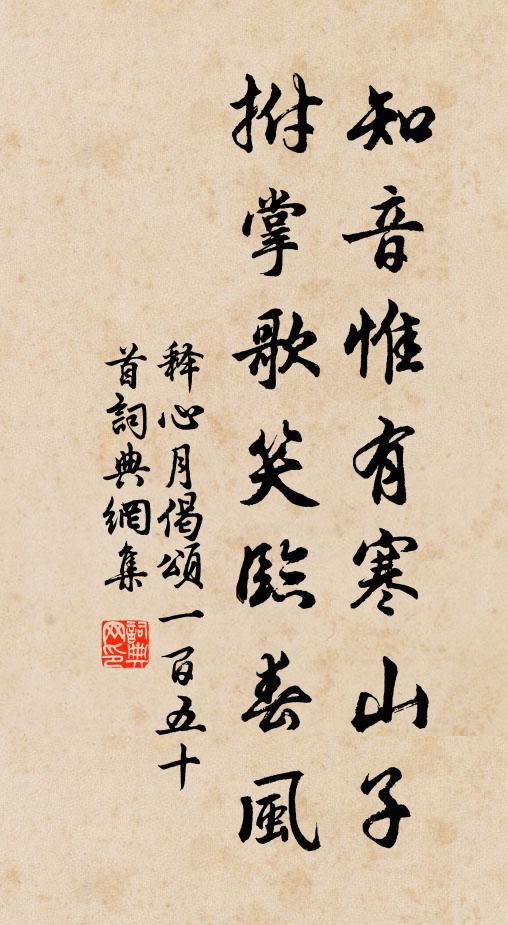 知音惟有寒山子
拊掌歌笑臨春風
釋心月偈頌一百五十
首詞典網集
詞典
网印